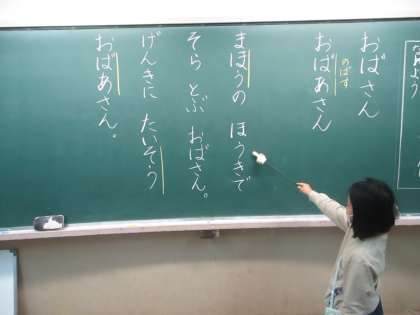 おばさん
のばす
おばあさん
まほうの ほうきで
そら とぶ おばさん。
げんきに たいそう
おばあさん。